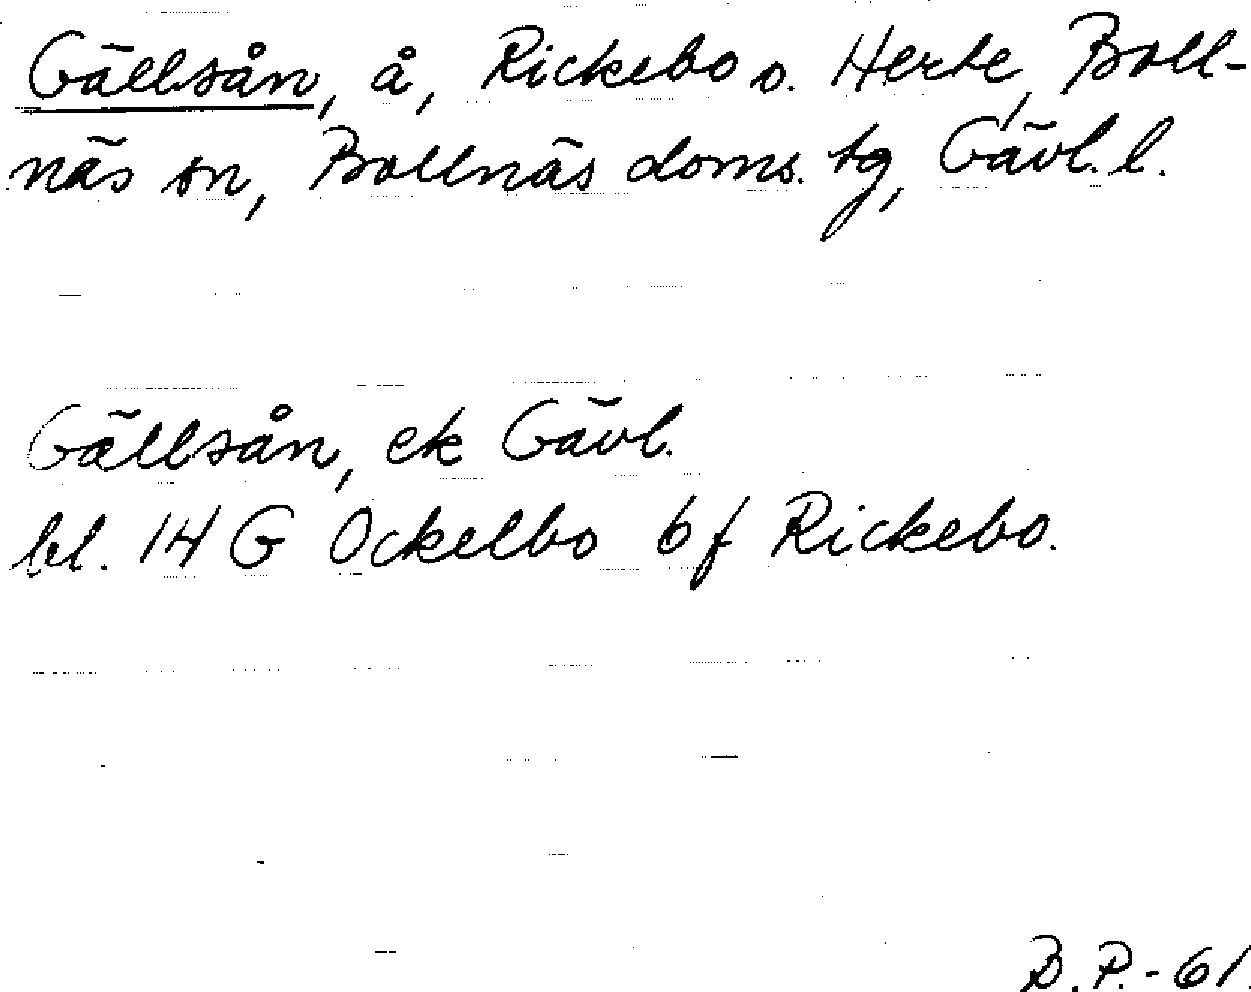 Gällsån, å, Rickebo o. Herte, Boll-
näs sn, Bollnäs doms. tg, Gävl. l.
Gällsån, ek Gävl.
bl. 14 G Ockelbo 6f Rickebo.
B.P.-61